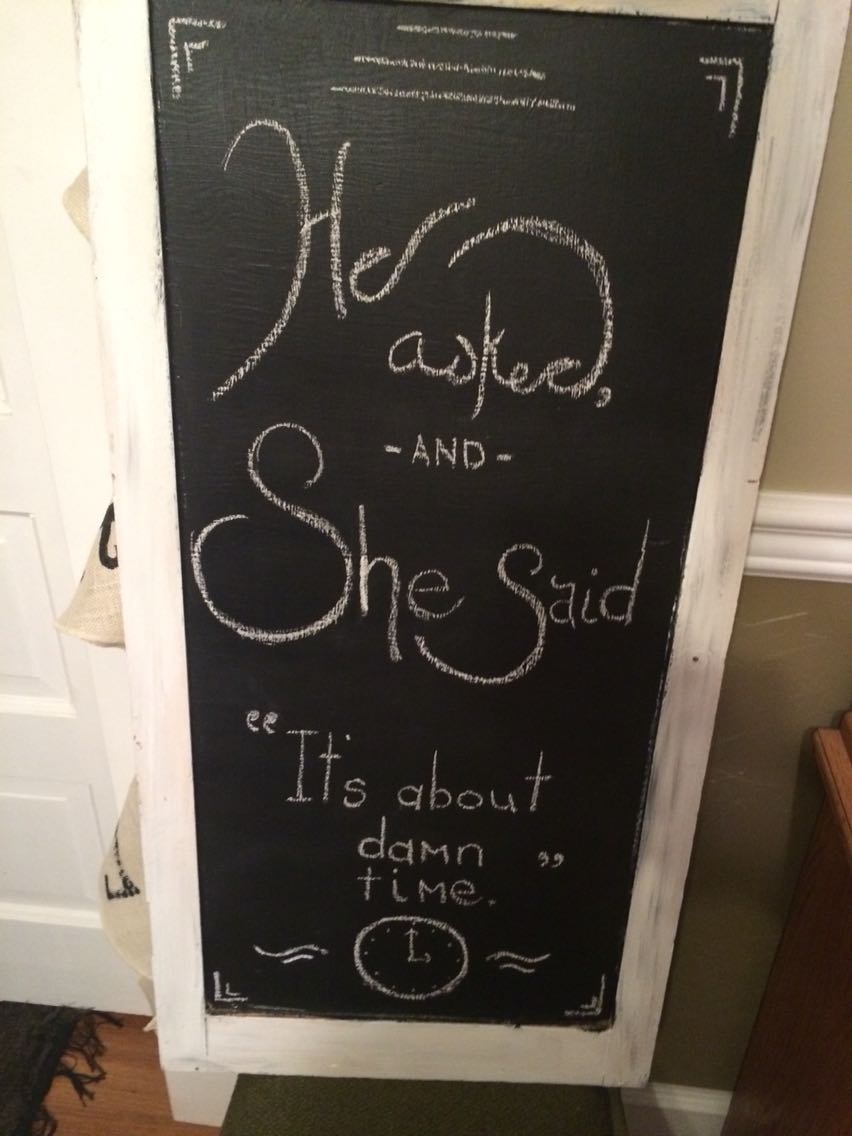 He
asked,
-AND-
She Said
“It's about
damn
time.”